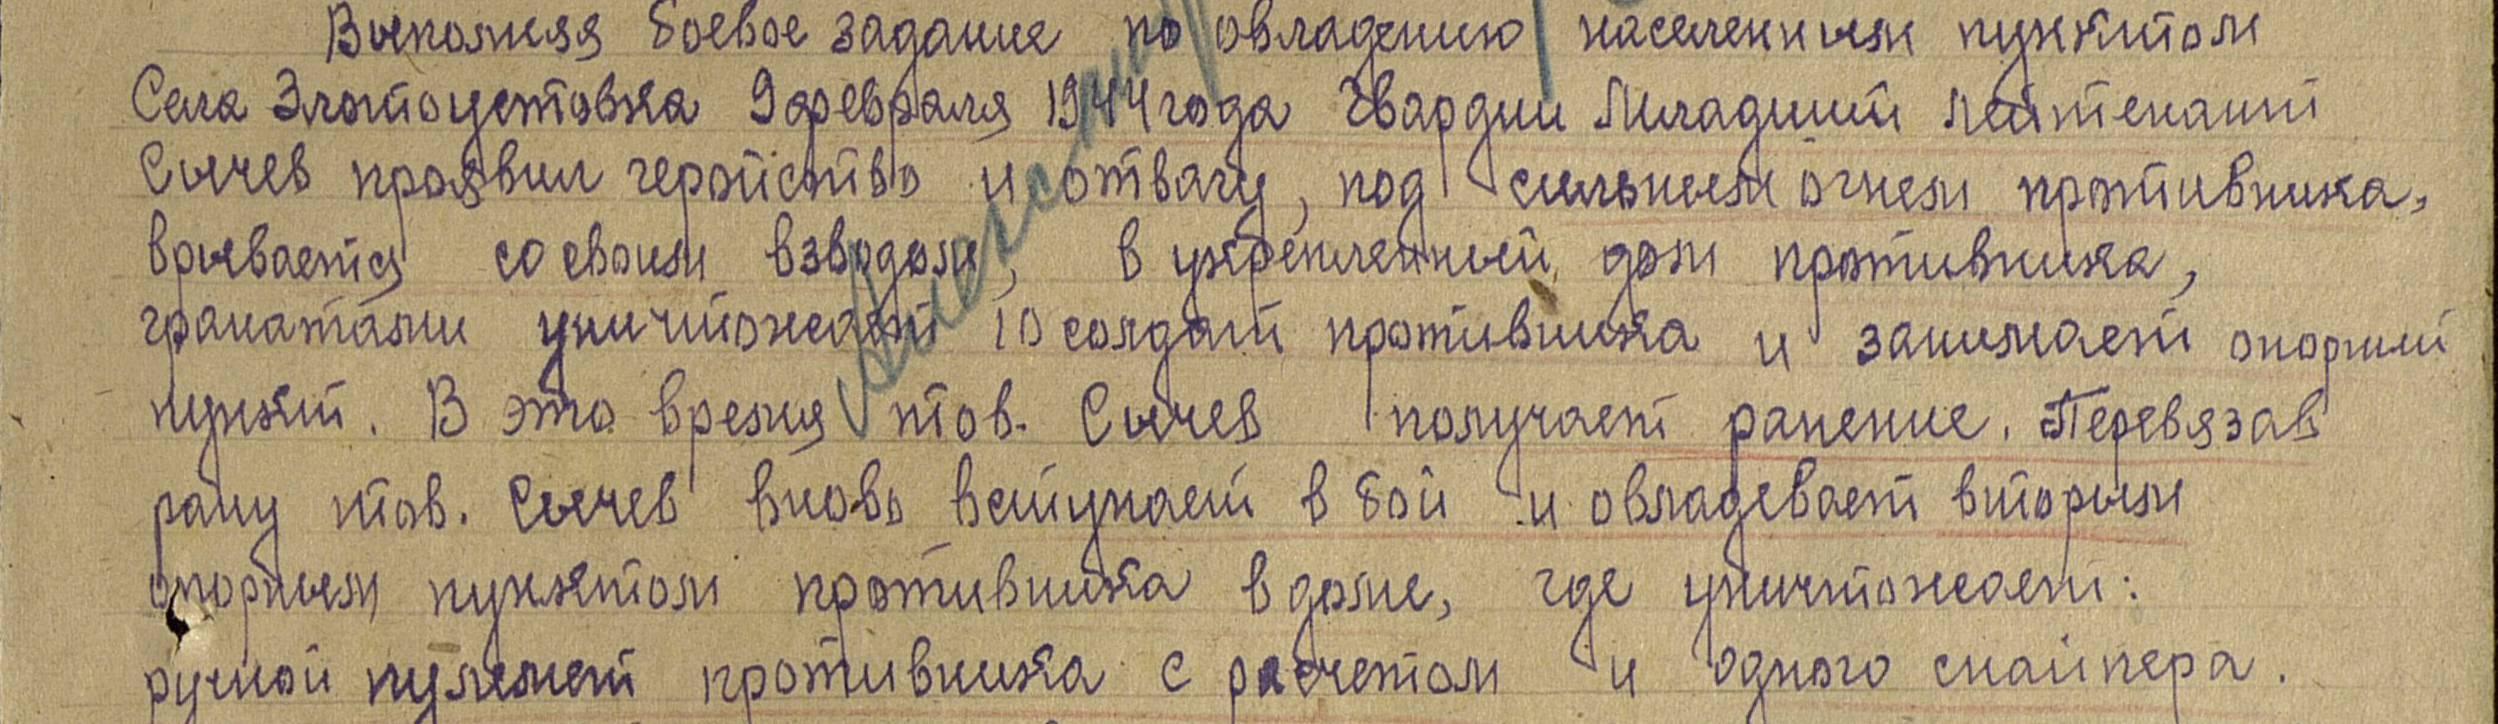 Выполняя боевое задание по овладению населенным пунктом
Села Златоустовка 9 февраля 1944 года Гвардии Младший Лейтенант
Сычев проявил геройство и отвагу, под сильным огнем противника,
врывается со своим взводом, в укрепленный дом противника,
гранатами уничтожает 10 солдат противника и занимает опорный
пункт. В это время тов. Сычев получает ранение. Перевязав
рану тов. Сычев вновь вступает в бой и овладевает вторым
опорным пунктом противника в доме, где уничтожает:
ручной пулемет противника с расчетом и одного снайпера.